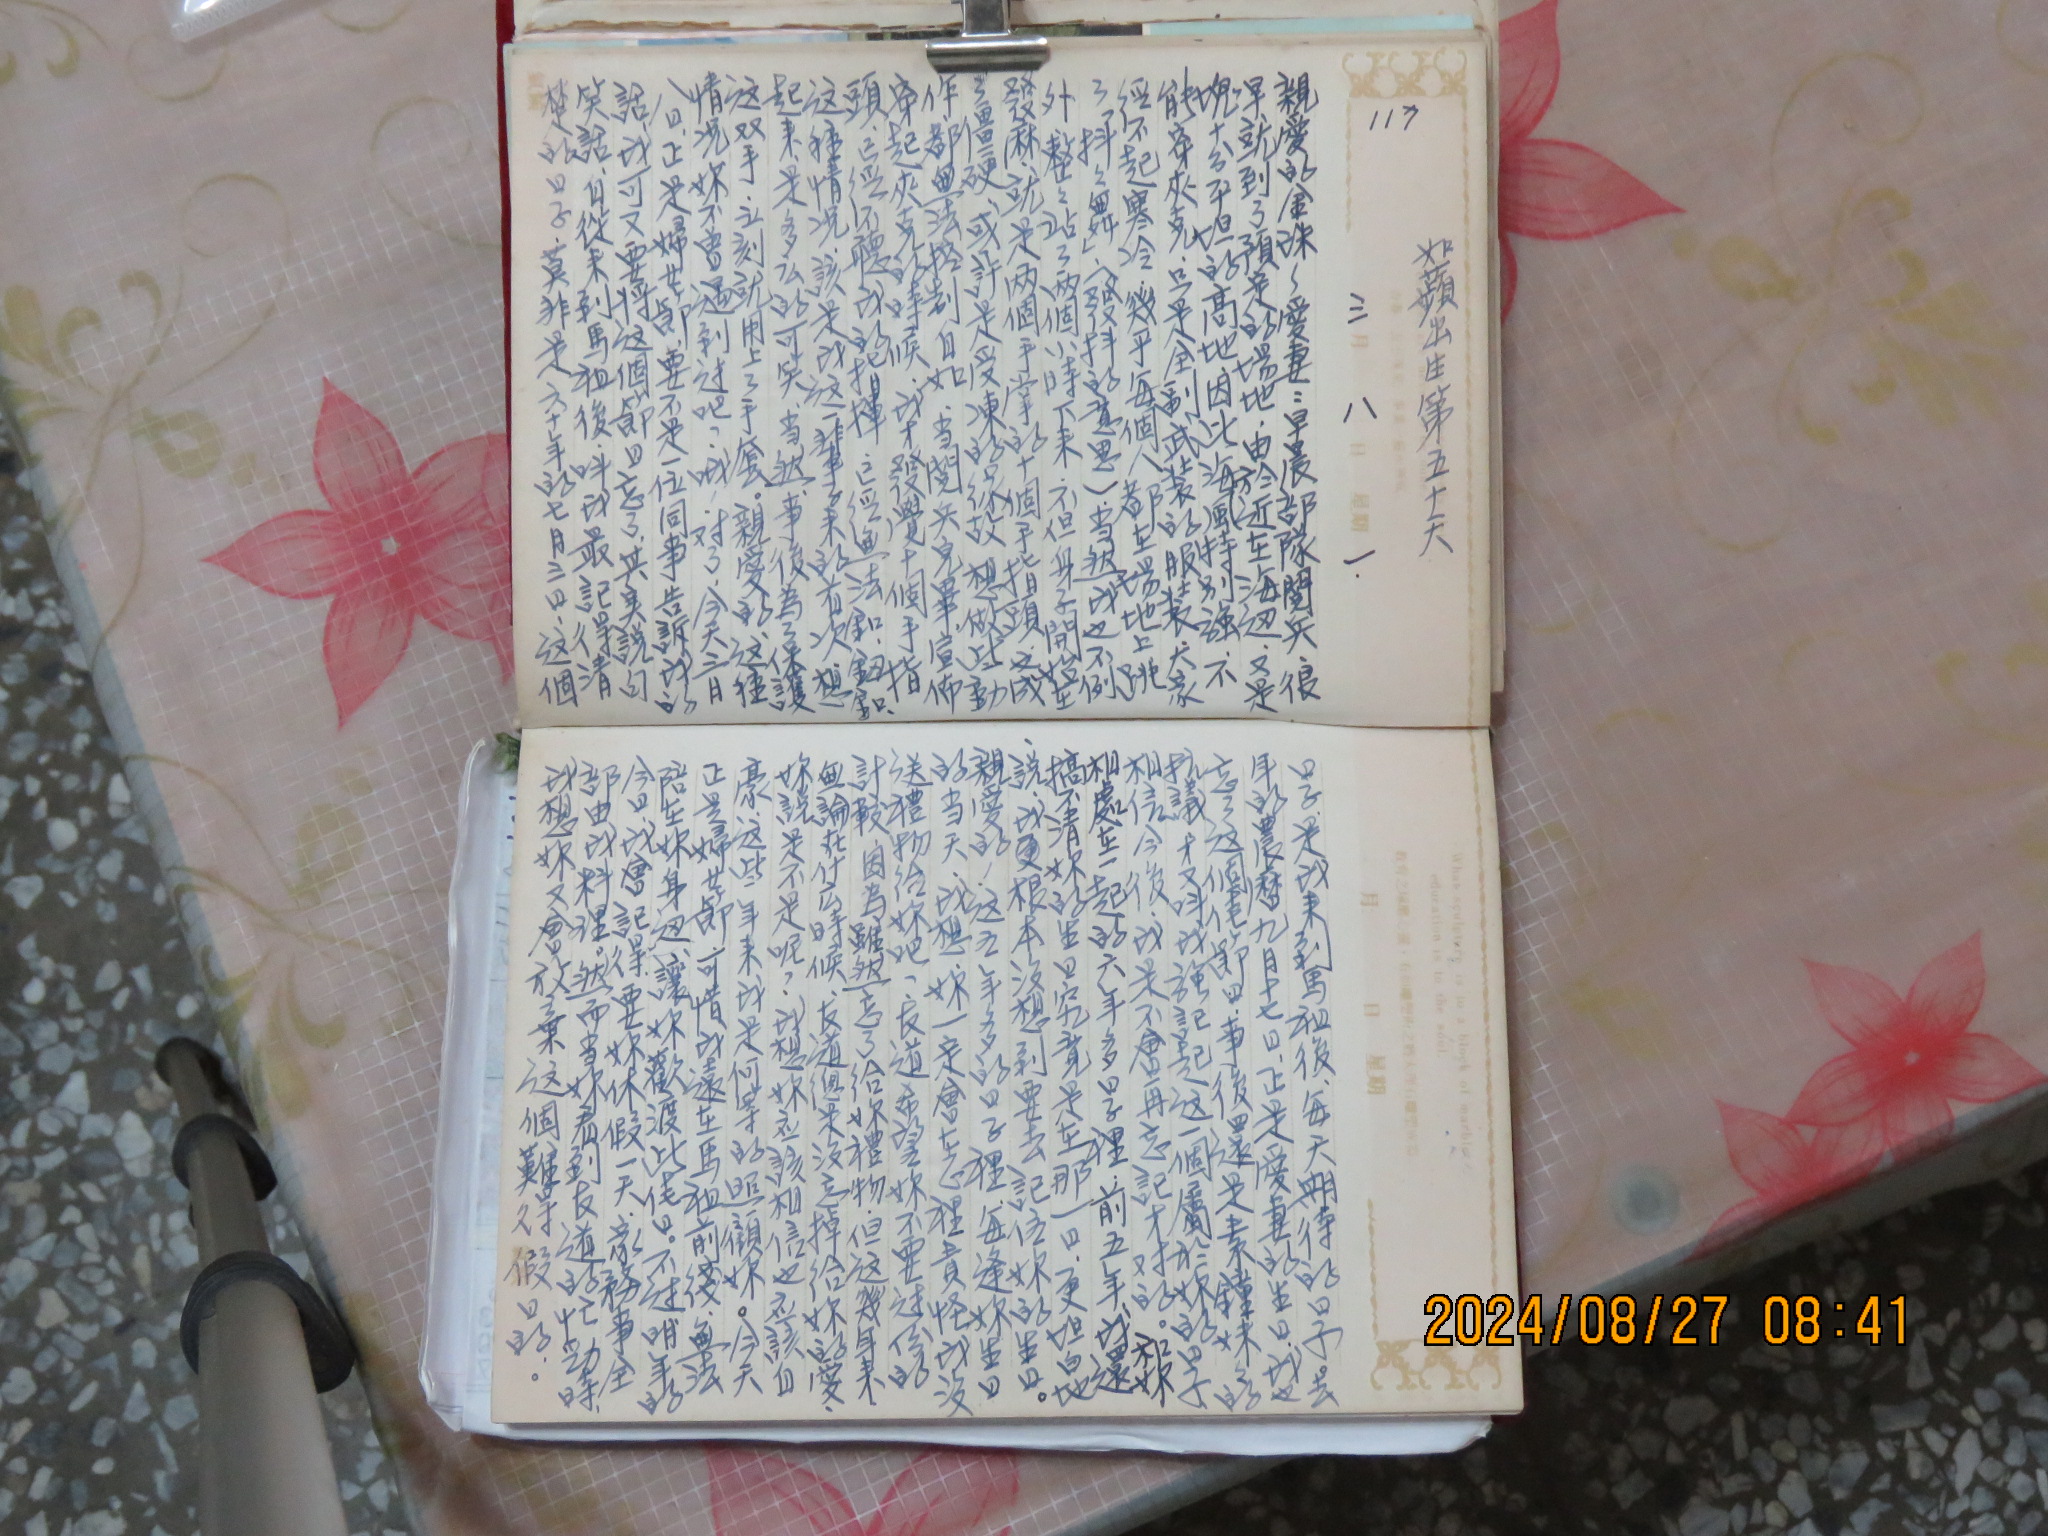 117
如蘋出生第五十天
三月八日星期一.
親愛的金珠~愛妻:早晨部隊閱兵,很
早就到了預定的場地,由於近在海边,又是
塊十分平坦的高地,因此,海風特別強,不
能穿夾克,只是全副武裝的服裝,大家
經不起寒冷,幾乎每個人都在場地上跳
了「抖抖舞」(發抖的意思),当然,我也不例
外,整整站了兩個小時下來,不但身子開始在
發麻,就是兩個手掌的十個手指頭,又成
了僵硬,或許是受凍的緣故,想做些動
作都無法控制自如,当閱兵完畢宣佈
穿起夾克的時候,我才發覺十個手指
頭,已經不聽我的指揮,已經無法釦鈕釦,
这種情况,該是我这一輩子來的首次,想
起來,是多么的可笑,当然,事後為了保護
这双手,立刻就用上了手套。親愛的,这種
情况妳不曾遇到过吧?哦!对了,今天三月
八日,正是婦女節,要不是一位同事告訴我的
話,我可又要將这個節日忘了,其实說句
笑話,自從來到馬祖後,叫我最記得清
楚的日子,莫非是六十年的七月三日,这個
日子,是我來到馬祖後,每天期待的日子。去
年的農曆九月十七日,正是愛妻的生日,我也
忘了这個佳節日,事後還是素鐘妹的
抗議,才又叫我強記起这一個屬於妳的日子
相信今後,我是不會再忘記才对的。和妳
相處在一起的六年多日子裡,前五年,我還
搞不清妳的生日究竟是在那一日,更坦白地
說,我更根本沒想到要去記住妳的生日。
親愛的!这五年多的日子裡,每逢妳生日
的当天,我想,妳一定會在心裡責怪我沒
送禮物給妳吧?友道希望妳不要过份的
計較,因為雖然忘了給妳禮物,但这幾年來
無論在什么時候,友道總是沒忘掉給妳的愛,
妳說是不是呢?我想妳应該相信也应該自
豪,这些年來,我是何等的照顧妳。今天
正是婦女節,可惜我遠在馬祖前線,無法
陪在妳身边,讓妳歡渡此佳日。不过明年的
今日,我會記得要妳休假一天,家務事全
部由我料理。然而当妳看到友道的忙劲時,
我想妳又會放棄这個難得假日的。
When sculpture is to a block of marble,
education is to the soul.
月 日 星期
2024/08/27 08:41